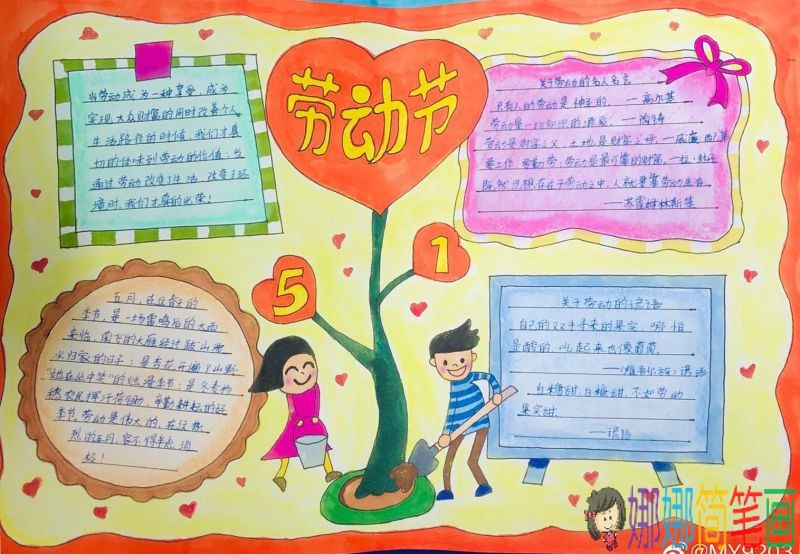 劳动节
5
1
当劳动成为一种享受,成为
实现大众财富的同时改善个人
生活路径的时候,我们才真
切的体味到劳动的价值;当
通过劳动改变了生活,改变了环
境时,我们才真的光荣!
关于劳动的名人名言
只有人的劳动是神圣的。——高尔基
劳动是一切知识的源泉。——陶铸
劳动是财富之父,土地是财富之母。——威廉·配第
要工作,要勤劳:劳动是最可靠的财富。——拉·封丹
既然思想存在于劳动之中,人就要靠劳动生存。
——苏霍姆林斯基
五月,在这春天的
季节,是一场雷鸣后的大雨
来临,南飞的大雁经过跋山涉
水归家的日子;是杏花开遍了山野
"她在丛中笑"的烂漫季节;是冬麦拔
穗,农民挥汗荷锄、辛勤耕耘的好
季节。劳动是伟大的,在这热
烈的五月,容不得半点消
极!
关于劳动的谚语
自己的双手寻来的果实,哪怕
是酸的,吃起来也像葡萄。
——(维吾尔族)谚语
红糖甜,白糖甜,不如劳动
果实甜。
——谚语
娜娜简笔画
@MXY303